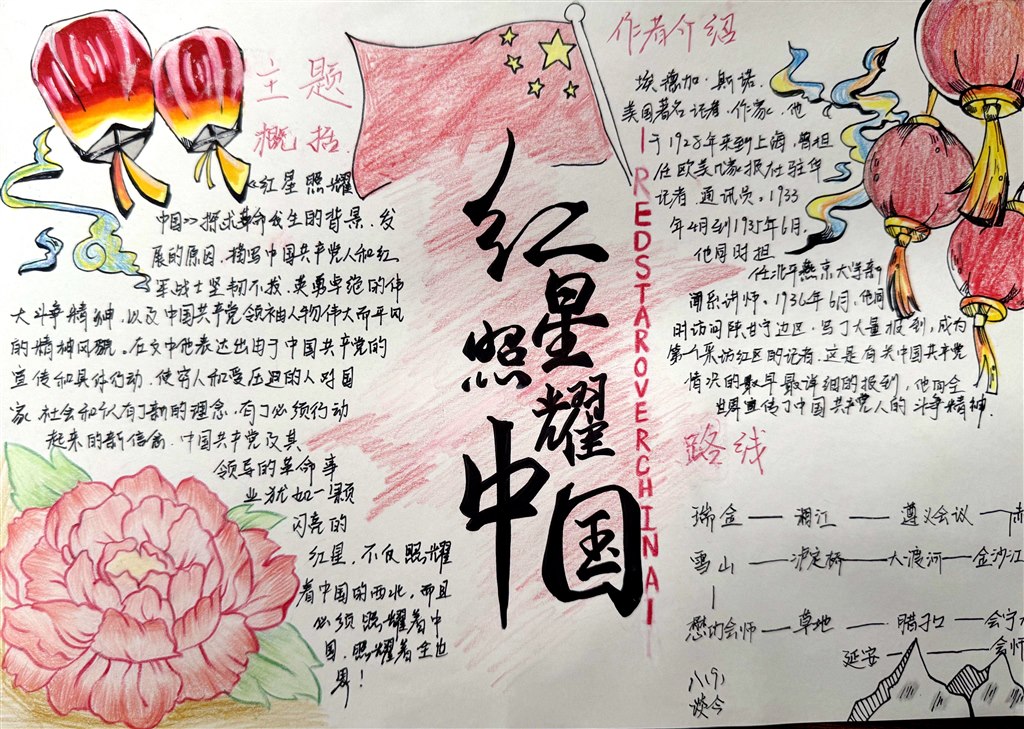 主题
概括
《红星照耀
中国》探求革命发生的背景、发
展的原因,描写中国共产党人和红
军战士坚韧不拔、英勇卓绝的伟
大斗争精神,以及中国共产党领袖人物伟大而平凡
的精神风貌。在文中他表达出由于中国共产党的
宣传和具体行动,使穷人和受压迫的人对国
家、社会和个人有了新的理念,有了必须行动
起来的新信念.中国共产党及其
领导的革命事
业犹如一颗
闪亮的
红星,不仅照耀
着中国的西北,而且
必须照耀着中
国,照耀着全世
界!
红星照耀中国
I REDSTAROVERCHINAI
作者介绍
埃德加·斯诺.
美国著名记者、作家,他
于1928年来到上海,曾担
任欧美几家报社驻华
记者、通讯员。1933
年4月到1935年6月,
他同时担
任北平燕京大学新
闻系讲师。1936年6月,他同
时访问陕甘宁边区,写了大量报到,成为
第一个采访红区的记者.这是有关中国共产党
情况的最早最详细的报到,他向全
世界宣传了中国共产党人的斗争精神.
路线
瑞金—湘江—遵义会议—赤
雪山—泸定桥—大渡河—金沙江
懋功会师—草地—腊子口—会宁
延安—会师
八19
淡今